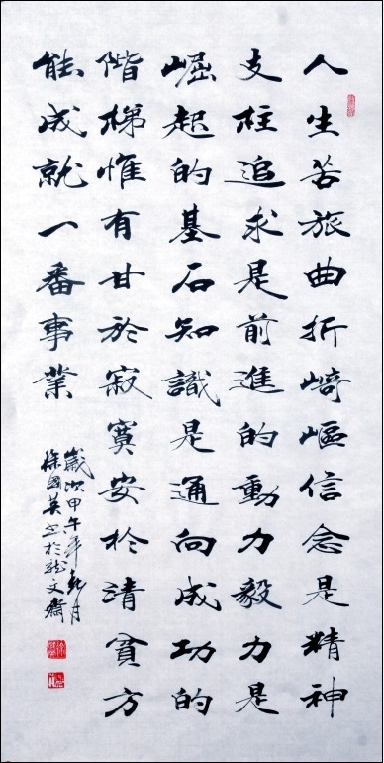 人生苦旅曲折崎嶇信念是精神
支柱追求是前進的動力毅力是
崛起的基石知識是通向成功的
階梯惟有甘於寂寞安於清貧方
能成就一番事業
歲次甲午年月
徐國英書於龍文齋